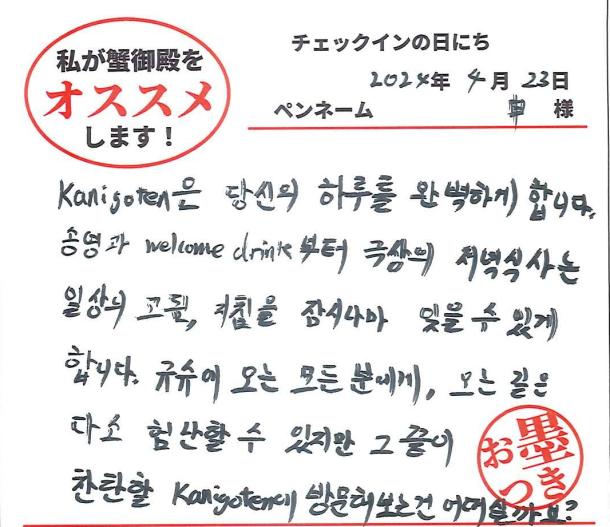 私が蟹御殿を
オススメ
します！
チェックインの日にち
2024年 4月 23日
ペンネーム 様
Kanigoten은 당신의 하루를 완벽하게 합니다.
송영과 welcome drink부터 극상의 저녁식사는
일상의 고됨, 지침을 잠시나마 잊을 수 있게
합니다. 규슈에 오는 모든 분에게, 오는 길은
다소 험난할 수 있지만 그 끝이
찬란할 Kanigoten에 방문해보는건 어떠실까요?
お墨つき